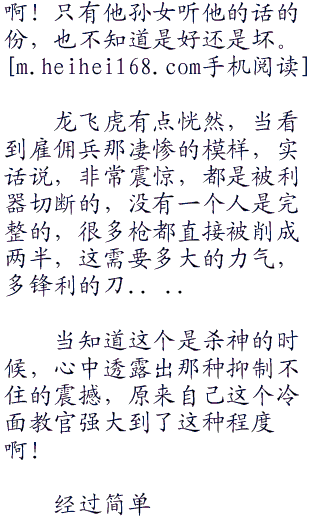 啊！只有他孙女听他的话的
份，也不知道是好还是坏。
[m.heihei168.com手机阅读]
龙飞虎有点恍然，当看
到雇佣兵那凄惨的模样，实
话说，非常震惊，都是被利
器切断的，没有一个人是完
整的，很多枪都直接被削成
两半，这需要多大的力气，
多锋利的刀．．．．
当知道这个是杀神的时
候，心中透露出那种抑制不
住的震撼，原来自己这个冷
面教官强大到了这种程度
啊！
经过简单